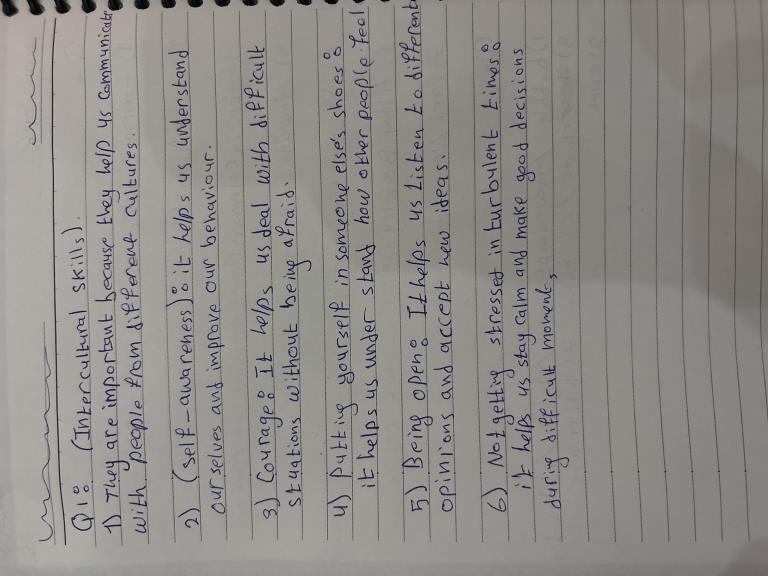 Q1: (Intercultural skills).
1) They are important because they help us communicate
with people from different cultures.
2) (self-awareness): it helps us understand
ourselves and improve our behaviour.
3) Courage: It helps us deal with difficult
stuations without being afraid.
4) putting yourself in someone else's shoes:
it helps us under stand how other people feel
5) Being open: It helps us Listen to different
opinions and accept new ideas.
6) Not getting stressed in turbulent times:
it helps us stay calm and make good decisions
during difficult moments,